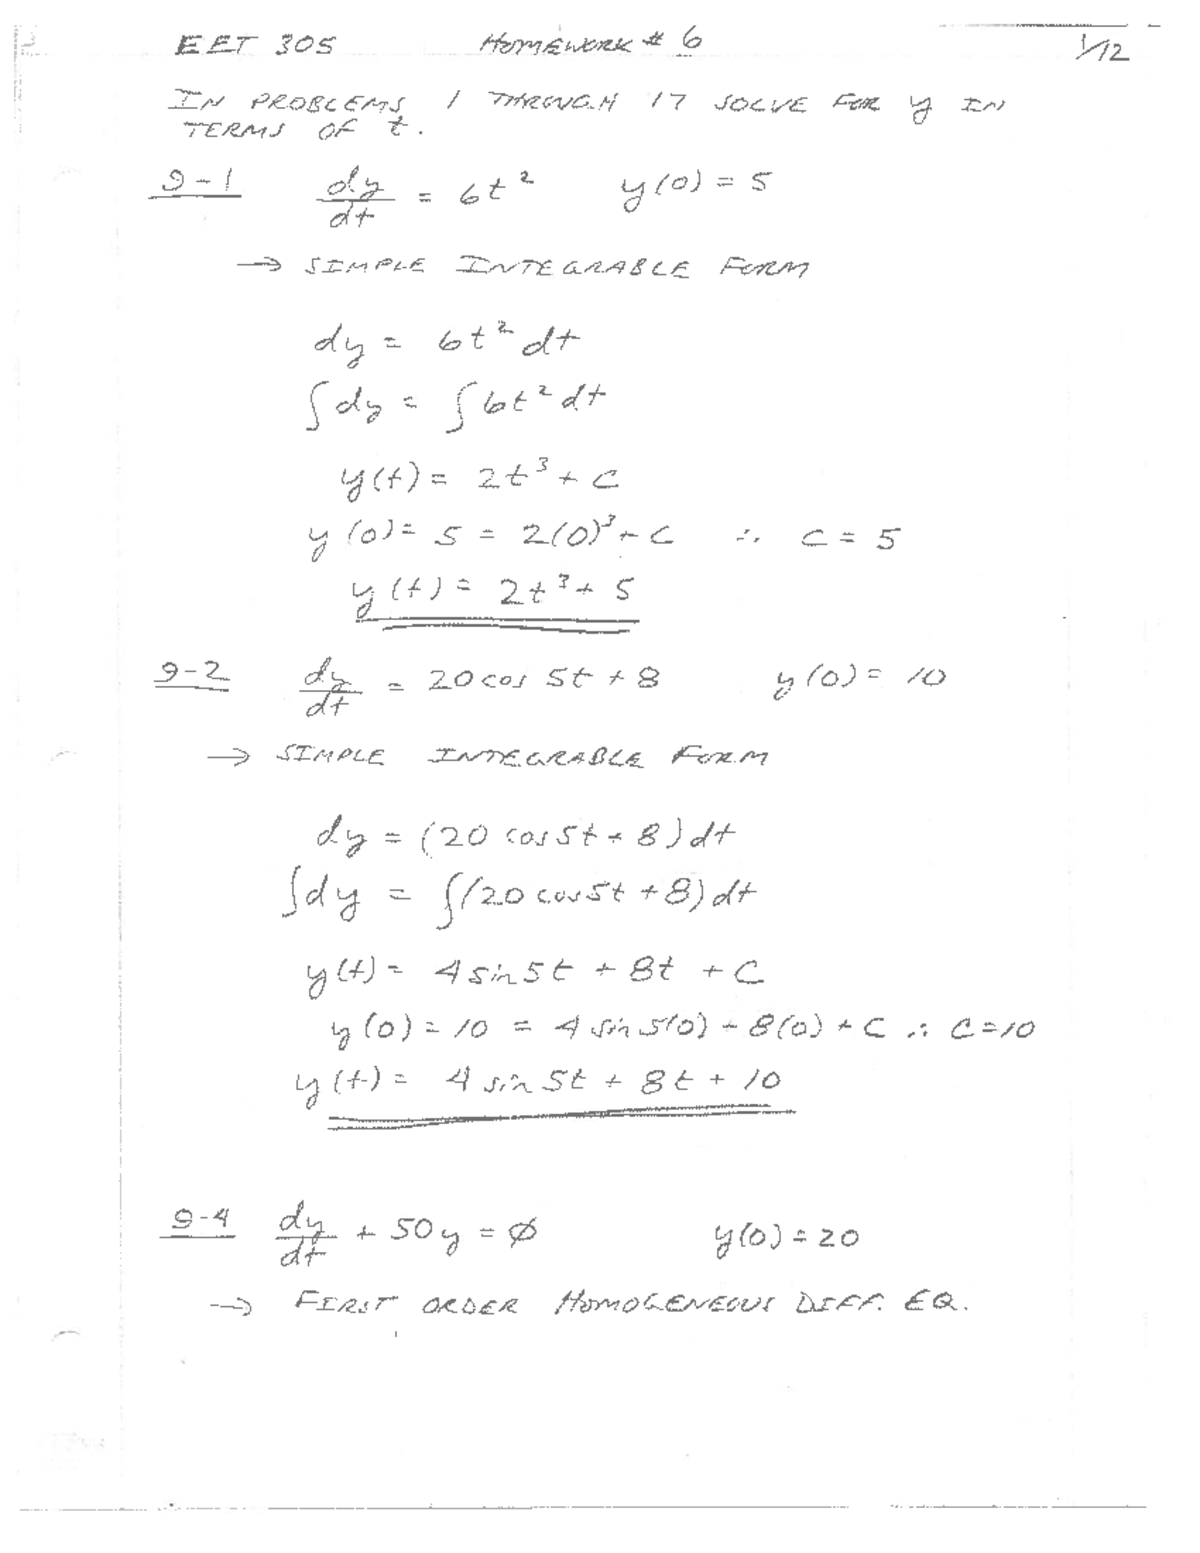 EET 305 HOMEWORK # 6 1/12
IN PROBLEMS 1 THROUGH 17 SOLVE FOR y IN
TERMS OF t.
9-1 dy/dt = 6t² y(0) = 5
→ SIMPLE INTEGRABLE FORM
dy = 6t² dt
∫dy = ∫6t² dt
y(t) = 2t³ + C
y(0) = 5 = 2(0)³ + C ∴ C = 5
y(t) = 2t³ + 5
9-2 dy/dt = 20 cos 5t + 8 y(0) = 10
→ SIMPLE INTEGRABLE FORM
dy = (20 cos 5t + 8) dt
∫dy = ∫(20 cos 5t + 8) dt
y(t) = 4 sin 5t + 8t + C
y(0) = 10 = 4 sin 5(0) + 8(0) + C ∴ C = 10
y(t) = 4 sin 5t + 8t + 10
9-4 dy/dt + 50y = ∅ y(0) = 20
→ FIRST ORDER HOMOGENEOUS DIFF. EQ.